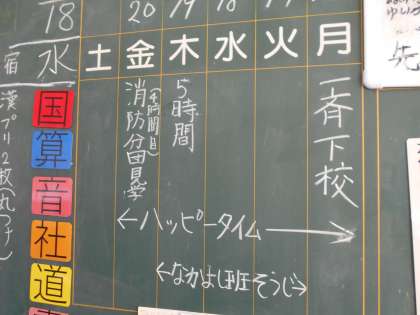 月
一斉下校
火
水
18
木
19
5時間
金
20
(4時間目)
消防分団見学
土
←ハッピータイム→
←なかよし班そうじ→
18
水
国
算
音
社
道
宿
漢プリ2枚(丸つけ)
先